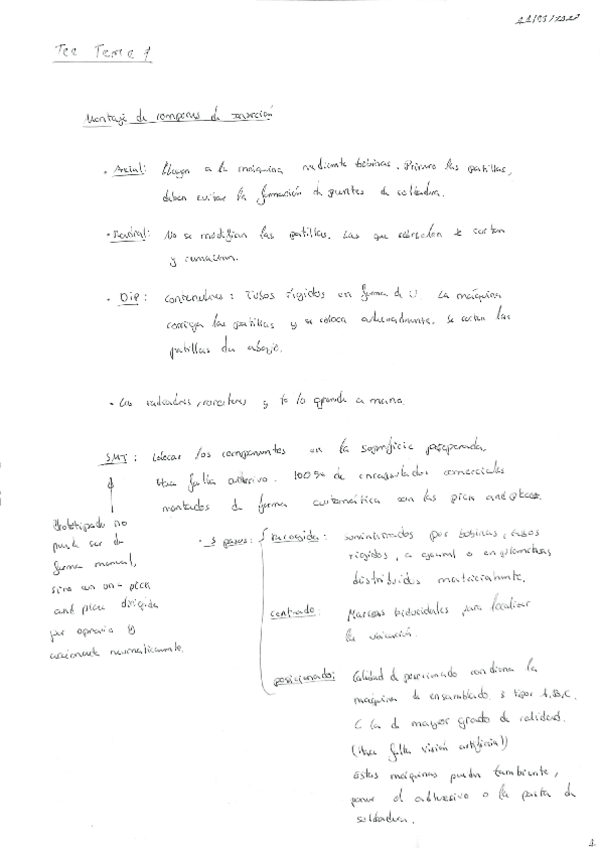 Tec Tema 1
Montaje de componentes de inserción
· Axial: llegan a la máquina mediante bobinas. Primero las patillas,
deben evitar la formación de puentes de soldadura.
· Radial: No se modifican las patillas. Las que sobresalen se cortan
y remachan.
· DIP: Contenedores: tubos rígidos en forma de U. La máquina
corrige las patillas y se coloca adecuadamente. Se cortan las
patillas de abajo.
· Los radiadores, conectores y to lo grande a mano.
SMT: colocar los componentes en la superficie preparada.
Hace falta adhesivo. 100% de encapsulados comerciales
montados de forma automática con las pick and place.
Prototipado no
puede ser de
forma manual,
sino en un pick
and place dirigida
por operario y
accionamiento neumáticamente.
· 3 pasos:
Recogida: suministrados por bobinas, tubos
rígidos, a granel o en
distribuidos matricialmente.
centrado: Marcas fiduciales para localizar
la ubicación.
posicionado: Calidad de posicionado condiciona la
máquina de ensamblado. 3 tipos A, B, C.
C la de mayor grado de calidad.
(Hace falta visión artificial)
Estas máquinas pueden también,
poner el adhesivo o la pasta de
soldadura.
1